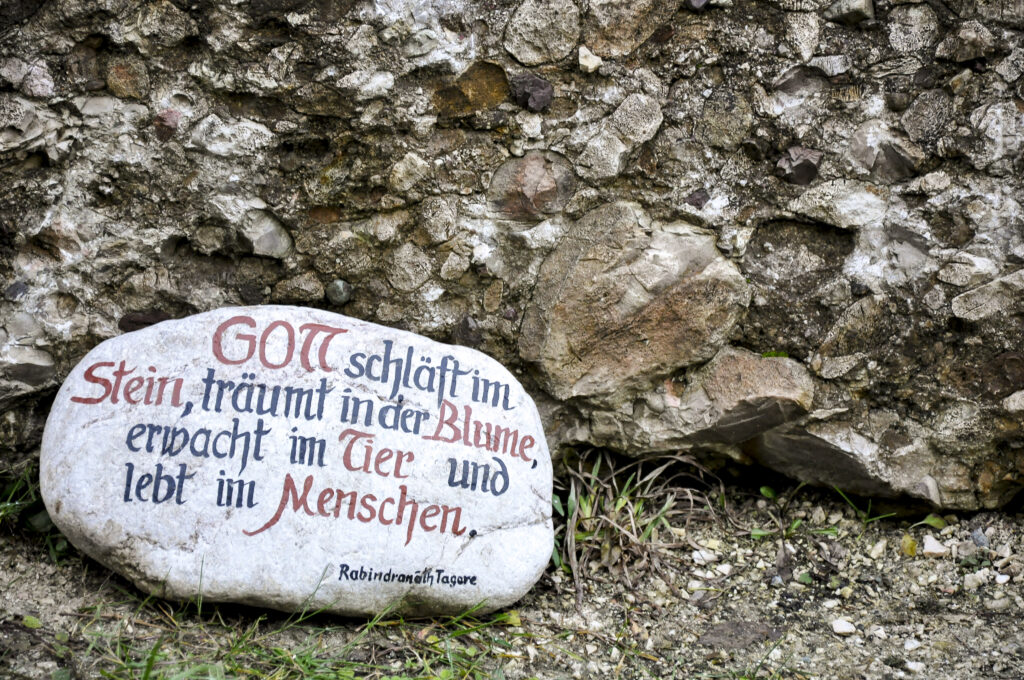 GOTT schläft im
Stein, träumt in der Blume,
erwacht im Tier und
lebt im Menschen.
Rabindranāth Tagore